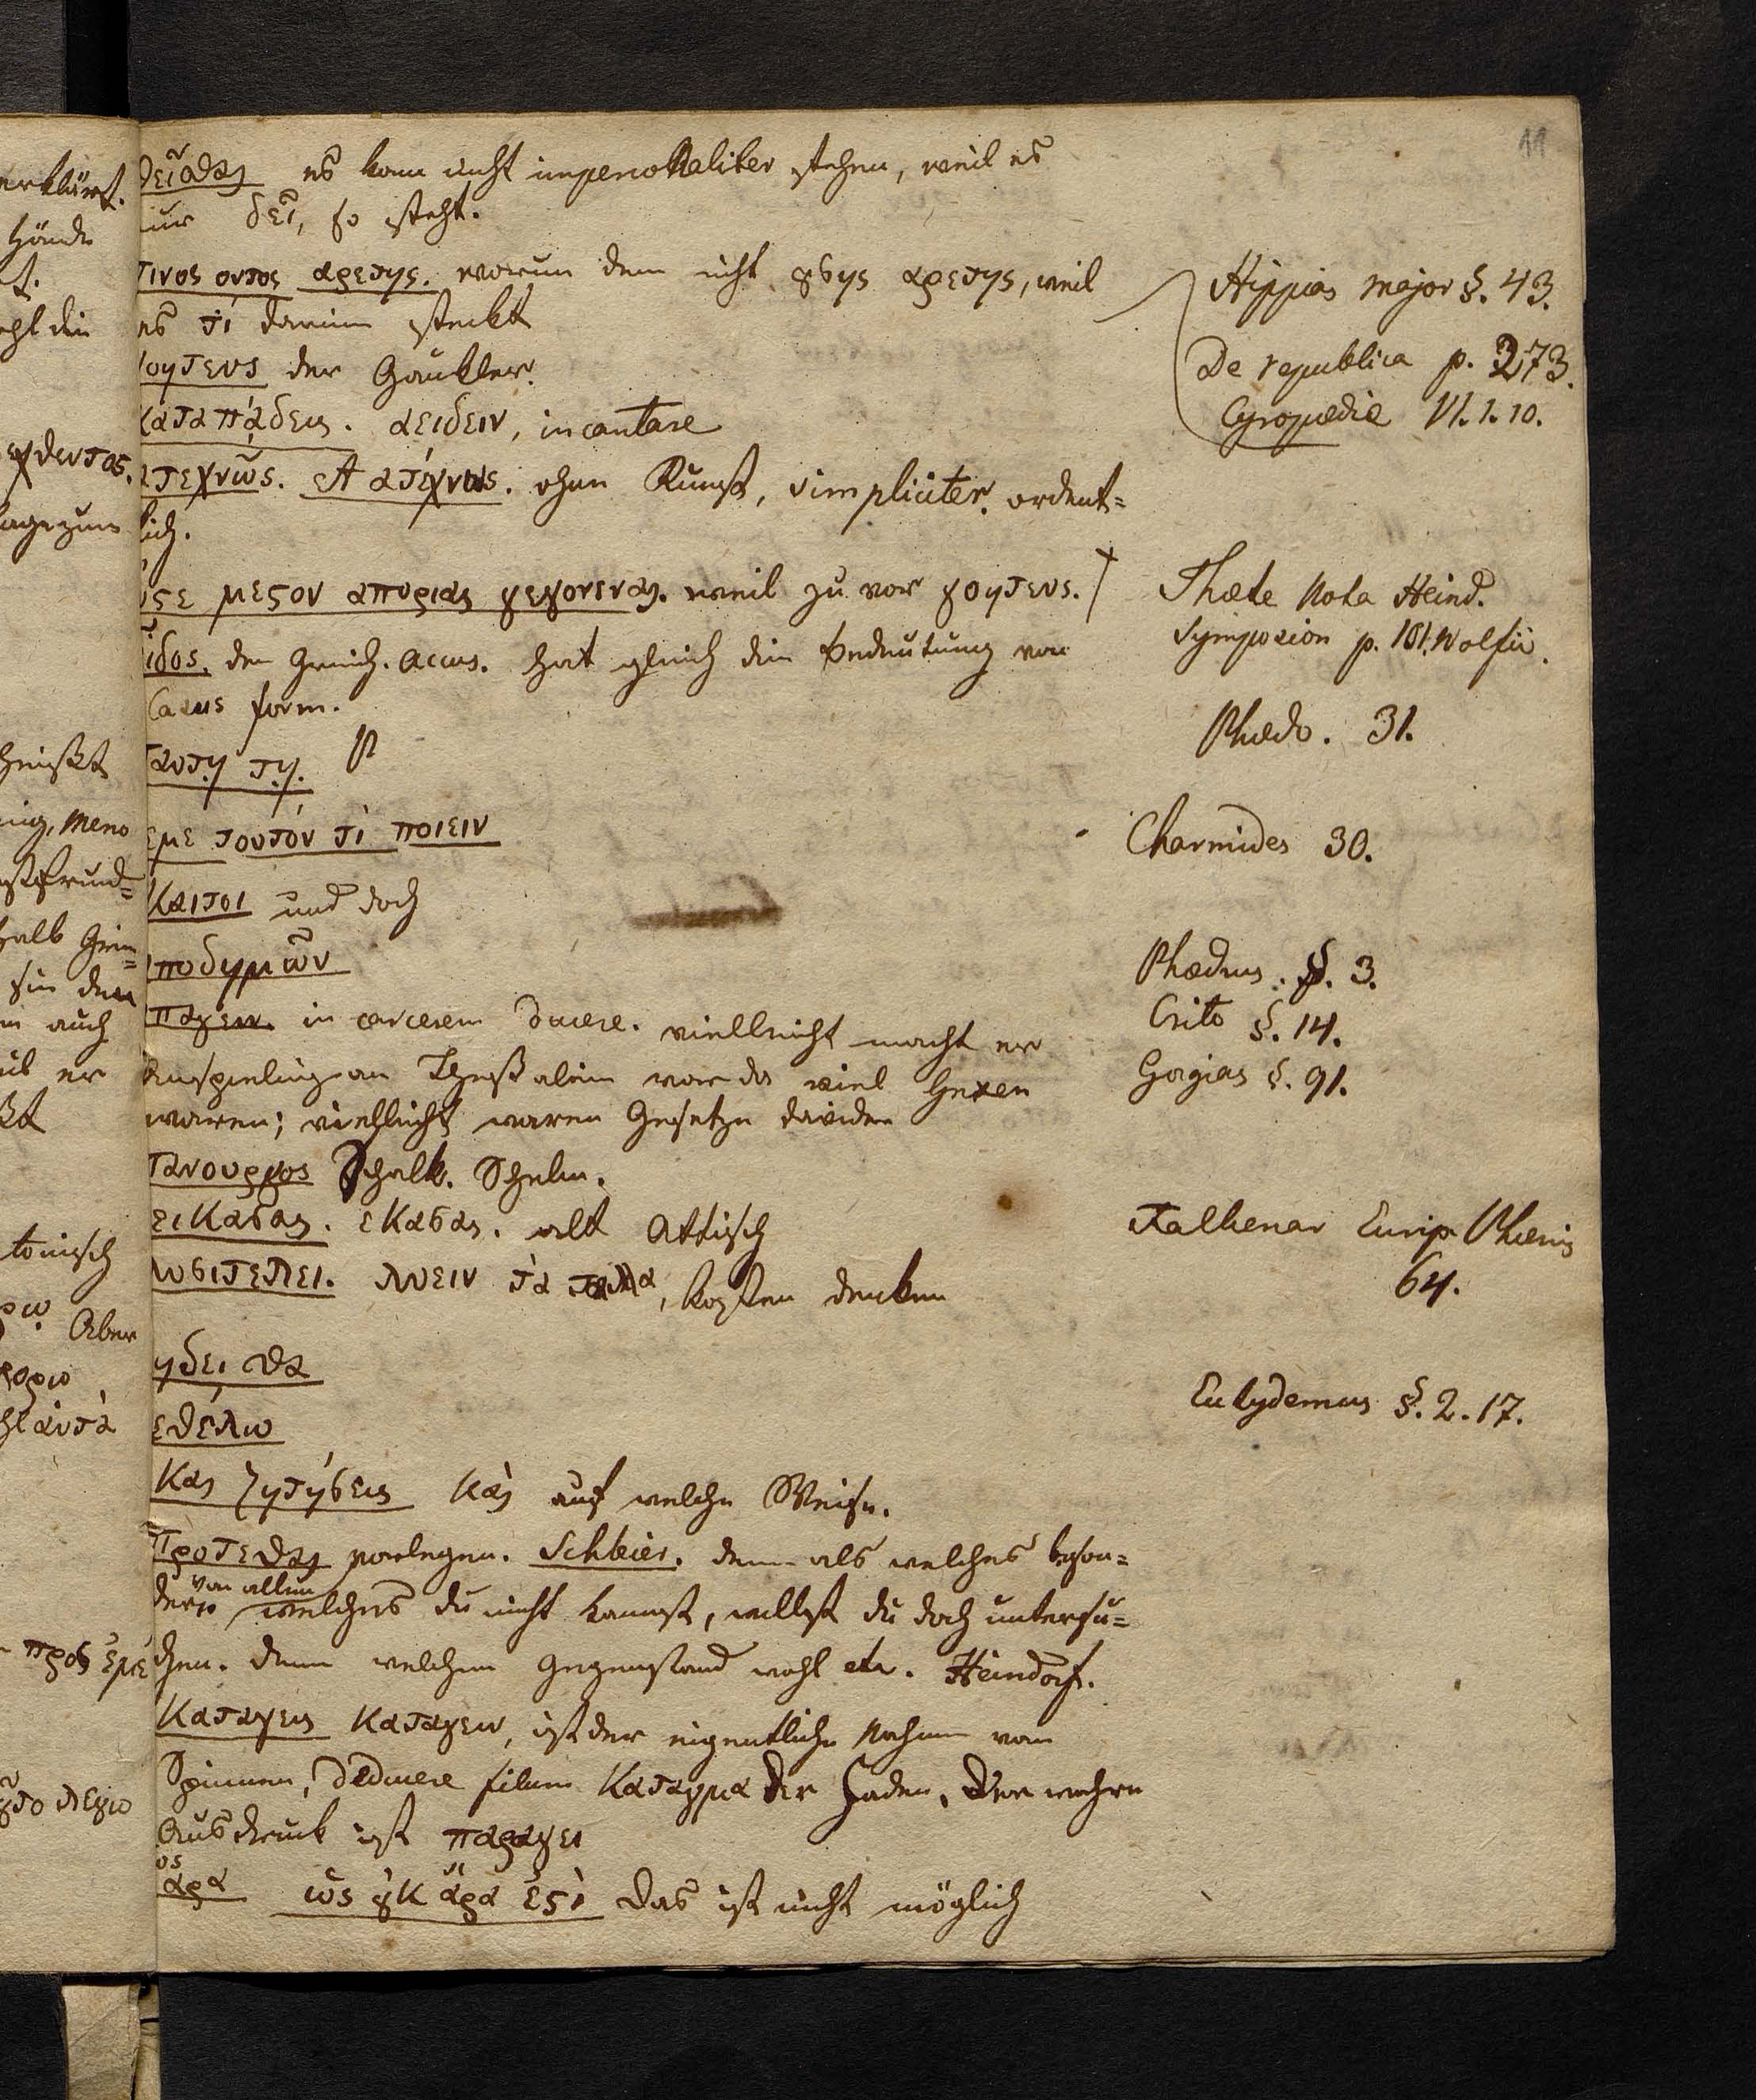 11
δεῖσθαι es kann nicht impersonaliter stehen, weil es
nur δεῖ, so steht.
τινος οντος αρετης. warum denn nicht ȣσης αρετης, weil
es τὶ darinn steckt
γοητευς der Gaukler.
καταπάδεις. αειδειν, incantare
ατεχνῶς. A ατέχνως. ohne Kunst, simpliciter. ordent=
lich.
ϛε μεϛον αποριας γεγονεναι. weil zu vor γοητευς.
εῖδος. der Griech. Accus. hat gleich die Bedeutung von
Casus form.
ταυτῃ τῃ.
εμε τουτόν τὶ ποιειν
Καιτοι und doch
αποδημῶν
απαγειν. in carcerem ducere. vielleicht macht er
Anspielung an Thessalien wo da viel Hexen
waren; vielleicht waren Gesetze dawider
πανουργος Schalk. Schelm.
εικασαι. εκασαι. alt Attisch
λυσιτελει. λυειν τὰ τελλα, Kosten decken
ηδει θα
εθέλω
Και ζητήσεις Καὶ auf welche Weise.
Προτεθαι vorlegen. Schleier. denn als welches beson=
ders von allem welches du nicht kennst, willst du doch untersu=
chen. denn welchen Gegenstand wohl etc. Heindorf.
Καταγεις Καταγειν, ist der eigentliche Nahme vom
Spinnen, deducere filum Καταγμα der Faden. Der wahre
Ausdruck ist παραγει
ος
ἀρα ὡς ȣκ ἄρα ἐϛὶ Das ist nicht möglich
Hippias major §. 43.
De republica p. 273.
Cyropædie VI. 1. 10.
Theæte Nota Heind.
Symposion p. 101. Wolfii.
Phædo. 31.
Charmides 30.
Phædrus. §. 3.
Crito §. 14.
Gorgias §. 91.
Valkenar Eurip. Phœnis
64.
Eutydemus §. 2. 17.
erklärt.
Hände
Meno
halb
auch
er
Aber
προς ἐμε
λεγω